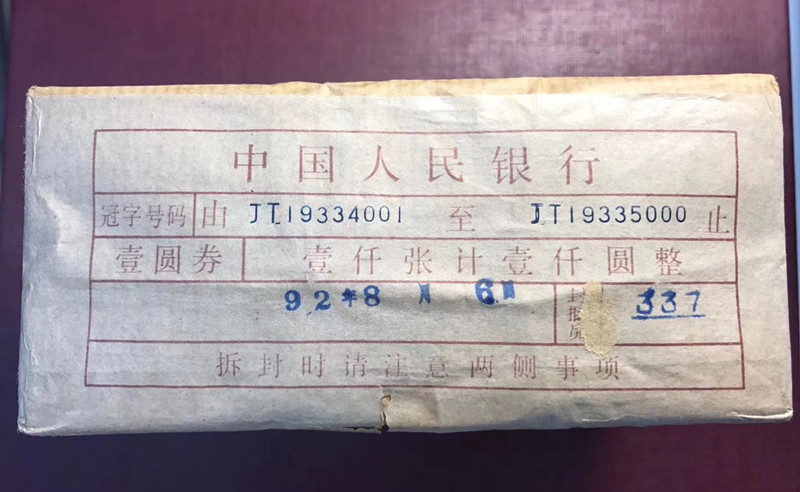 中国人民银行
冠字号码 由 JT19334001 至 JT19335000 止
壹圆券 壹仟张计壹仟圆整
92年8月6日 封捆员 337
拆封时请注意两侧事项